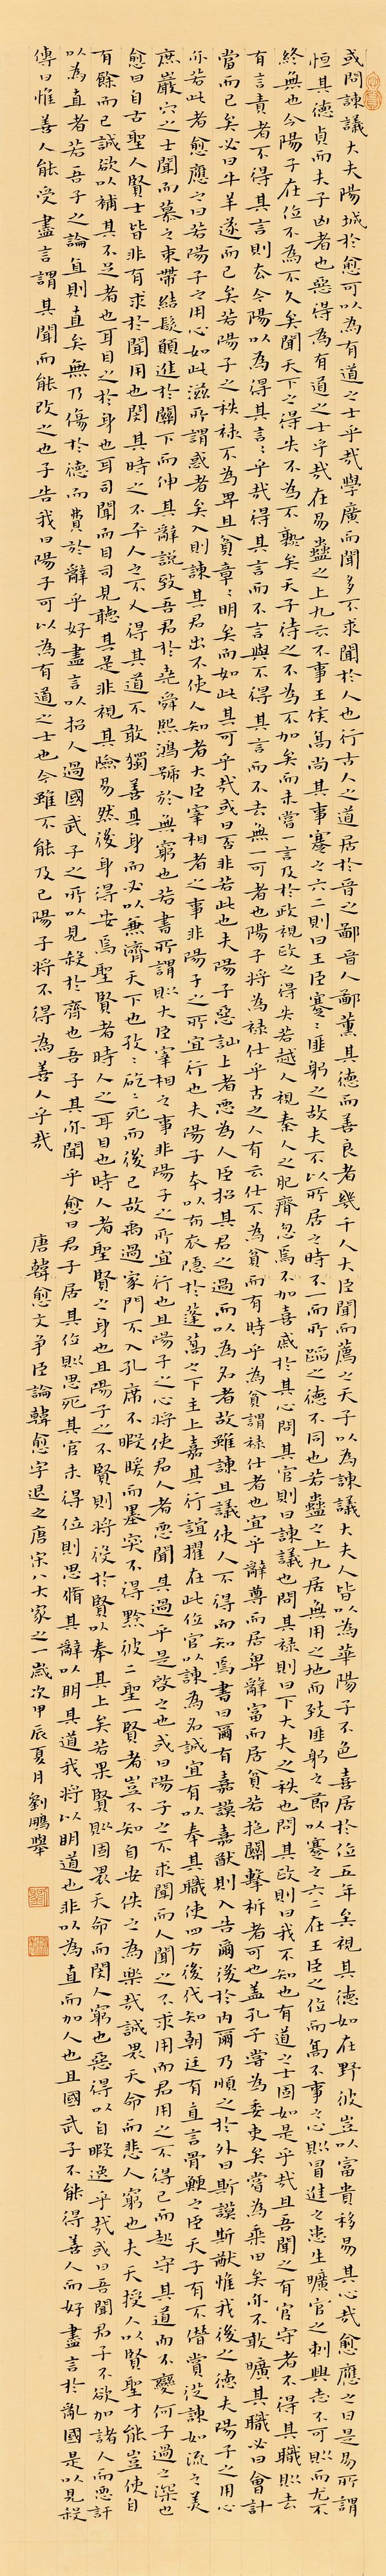 或問諫議大夫陽城於愈可以為有道之士乎哉學廣而聞多不求聞於人也行古人之道居於晉之鄙晉人鄙薰其德而善良者幾千人大臣聞而薦之天子以為諫議大夫人皆以為華陽子不色喜居於位五年矣視其德如在野彼豈以富貴移易其心哉愈應之曰是易所謂
恒其德貞而夫子凶者也惡得為有道之士乎哉在易蠱之上九云不事王侯高尚其事蹇之六二則曰王臣蹇〻匪躬之故夫不以所居之時不一而所蹈之德不同也若蠱之上九居無用之地而致匪躬之節以蹇之六二在王臣之位而高不事之心則冒進之患生曠官之刺興志不可則而尤不
終無也今陽子在位不為不久矣聞天下之得失不為不熟矣天子待之不為不加矣而未嘗一言及於政視政之得失若越人視秦人之肥瘠忽焉不加喜戚於其心問其官則曰諫議也問其祿則曰下大夫之秩也問其政則曰我不知也有道之士固如是乎哉且吾聞之有官守者不得其職則去
有言責者不得其言則去今陽以為得其言〻乎哉得其言而不言與不得其言而不去無一可者也陽子將為祿仕乎古之人有云仕不為貧而有時乎為貧謂祿仕者也宜乎辭尊而居卑辭富而居貧若抱關擊柝者可也蓋孔子嘗為委吏矣嘗為乘田矣亦不敢曠其職必曰會計
當而已矣必曰牛羊遂而已矣若陽子之秩祿不為卑且貧章〻明矣而如此其可乎哉或曰否非若此也夫陽子惡訕上者惡為人臣招其君之過而以為名者故雖諫且議使人不得而知焉書曰爾有嘉謨嘉猷則入告爾後於內爾乃順之於外曰斯謨斯猷惟我後之德夫陽子之用心
亦若此者愈應之曰若陽子之用心如此滋所謂惑者矣入則諫其君出不使人知者大臣宰相者之事非陽子之所宜行也夫陽子本以布衣隱於蓬蒿之下主上嘉其行誼擢在此位官以諫為名誠宜有以奉其職使四方後代知朝廷有直言骨鯁之臣天子有不僭賞從諫如流之美
庶巖穴之士聞而慕之束帶結髮願進於闕下而伸其辭說致吾君於堯舜熙鴻號於無窮也若書所謂則大臣宰相之事非陽子之所宜行也且陽子之心將使君人者惡聞其過乎是啟之也或曰陽子之不求聞而人聞之不求用而君用之不得已而起守其道而不變何子過之深也
愈曰自古聖人賢士皆非有求於聞用也閔其時之不平人之不乂得其道不敢獨善其身而必以兼濟天下也孜〻矻〻死而後已故禹過家門不入孔席不暇暖而墨突不得黔彼二聖一賢者豈不知自安佚之為樂哉誠畏天命而悲人窮也夫天授人以賢聖才能豈使自
有餘而已誠欲以補其不足者也耳目之於身也耳司聞而目司見聽其是非視其險易然後身得安焉聖賢者時人之耳目也時人者聖賢之身也且陽子之不賢則將役於賢以奉其上矣若果賢則固畏天命而閔人窮也惡得以自暇逸乎哉或曰吾聞君子不欲加諸人而惡訐
以為直者若吾子之論直則直矣無乃傷於德而費於辭乎好盡言以招人過國武子之所以見殺於齊也吾子其亦聞乎愈曰君子居其位則思死其官未得位則思脩其辭以明其道我將以明道也非以為直而加人也且國武子不能得善人而好盡言於亂國是以見殺
傳曰惟善人能受盡言謂其聞而能改之也子告我曰陽子可以為有道之士也今雖不能及已陽子將不得為善人乎哉 唐韓愈文爭臣論韓愈字退之唐宋八大家之一歲次甲辰夏月劉鵬舉